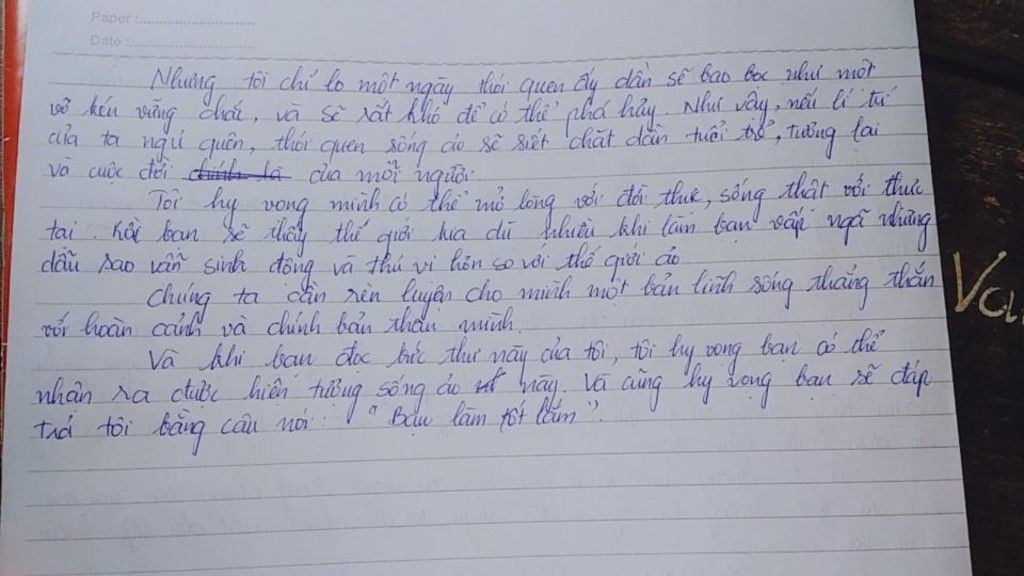 Paper :
Date :
Nhưng tôi chỉ lo một ngày thói quen ấy dần sẽ bao bọc như một
vỏ kén vững chắc, và sẽ rất khó để có thể phá hủy. Như vậy, nếu lí trí
của ta ngủ quên, thói quen sống ảo sẽ siết chặt dần tuổi trẻ, tương lai
và cuộc đời chính là của mỗi người.
Tôi hy vọng mình có thể mở lòng với đời thực, sống thật với thực
tại. Rồi bạn sẽ thấy thế giới kia dù nhiều khi làm bạn vấp ngã nhưng
dẫu sao vẫn sinh động và thú vị hơn so với thế giới ảo
Chúng ta cần rèn luyện cho mình một bản lĩnh sống thẳng thắn
với hoàn cảnh và chính bản thân mình.
Và khi bạn đọc bức thư này của tôi, tôi hy vọng bạn có thể
nhận ra được hiện tượng sống ảo này. Và cũng hy vọng bạn sẽ đáp
trả tôi bằng câu nói: "Bạn làm tốt lắm".